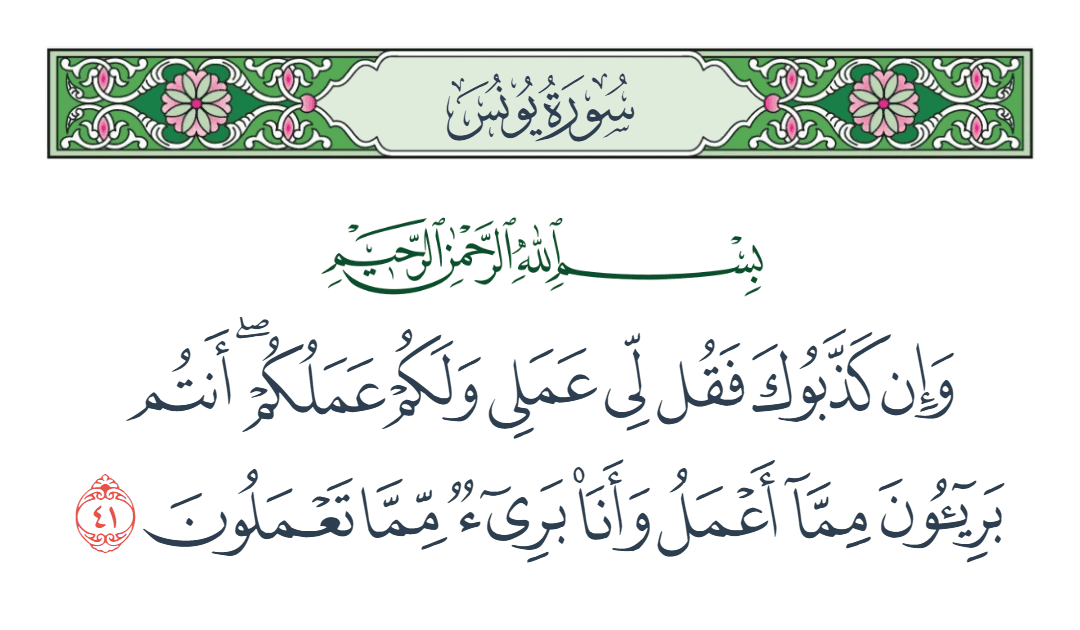 سُورَةُ يُونُسَ
بِسْمِ ٱللَّهِ ٱلرَّحْمَٰنِ ٱلرَّحِيمِ
وَإِن كَذَّبُوكَ فَقُل لِّى عَمَلِى وَلَكُمْ عَمَلُكُمْ ۖ أَنتُم
بَرِيٓـُٔونَ مِمَّآ أَعْمَلُ وَأَنَا۠ بَرِىٓءٌ مِّمَّا تَعْمَلُونَ ٤١